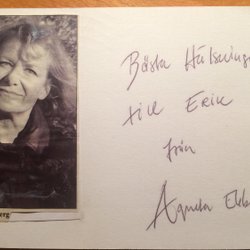 Bästa Hälsninga
till Erik
från
Agneta
erg